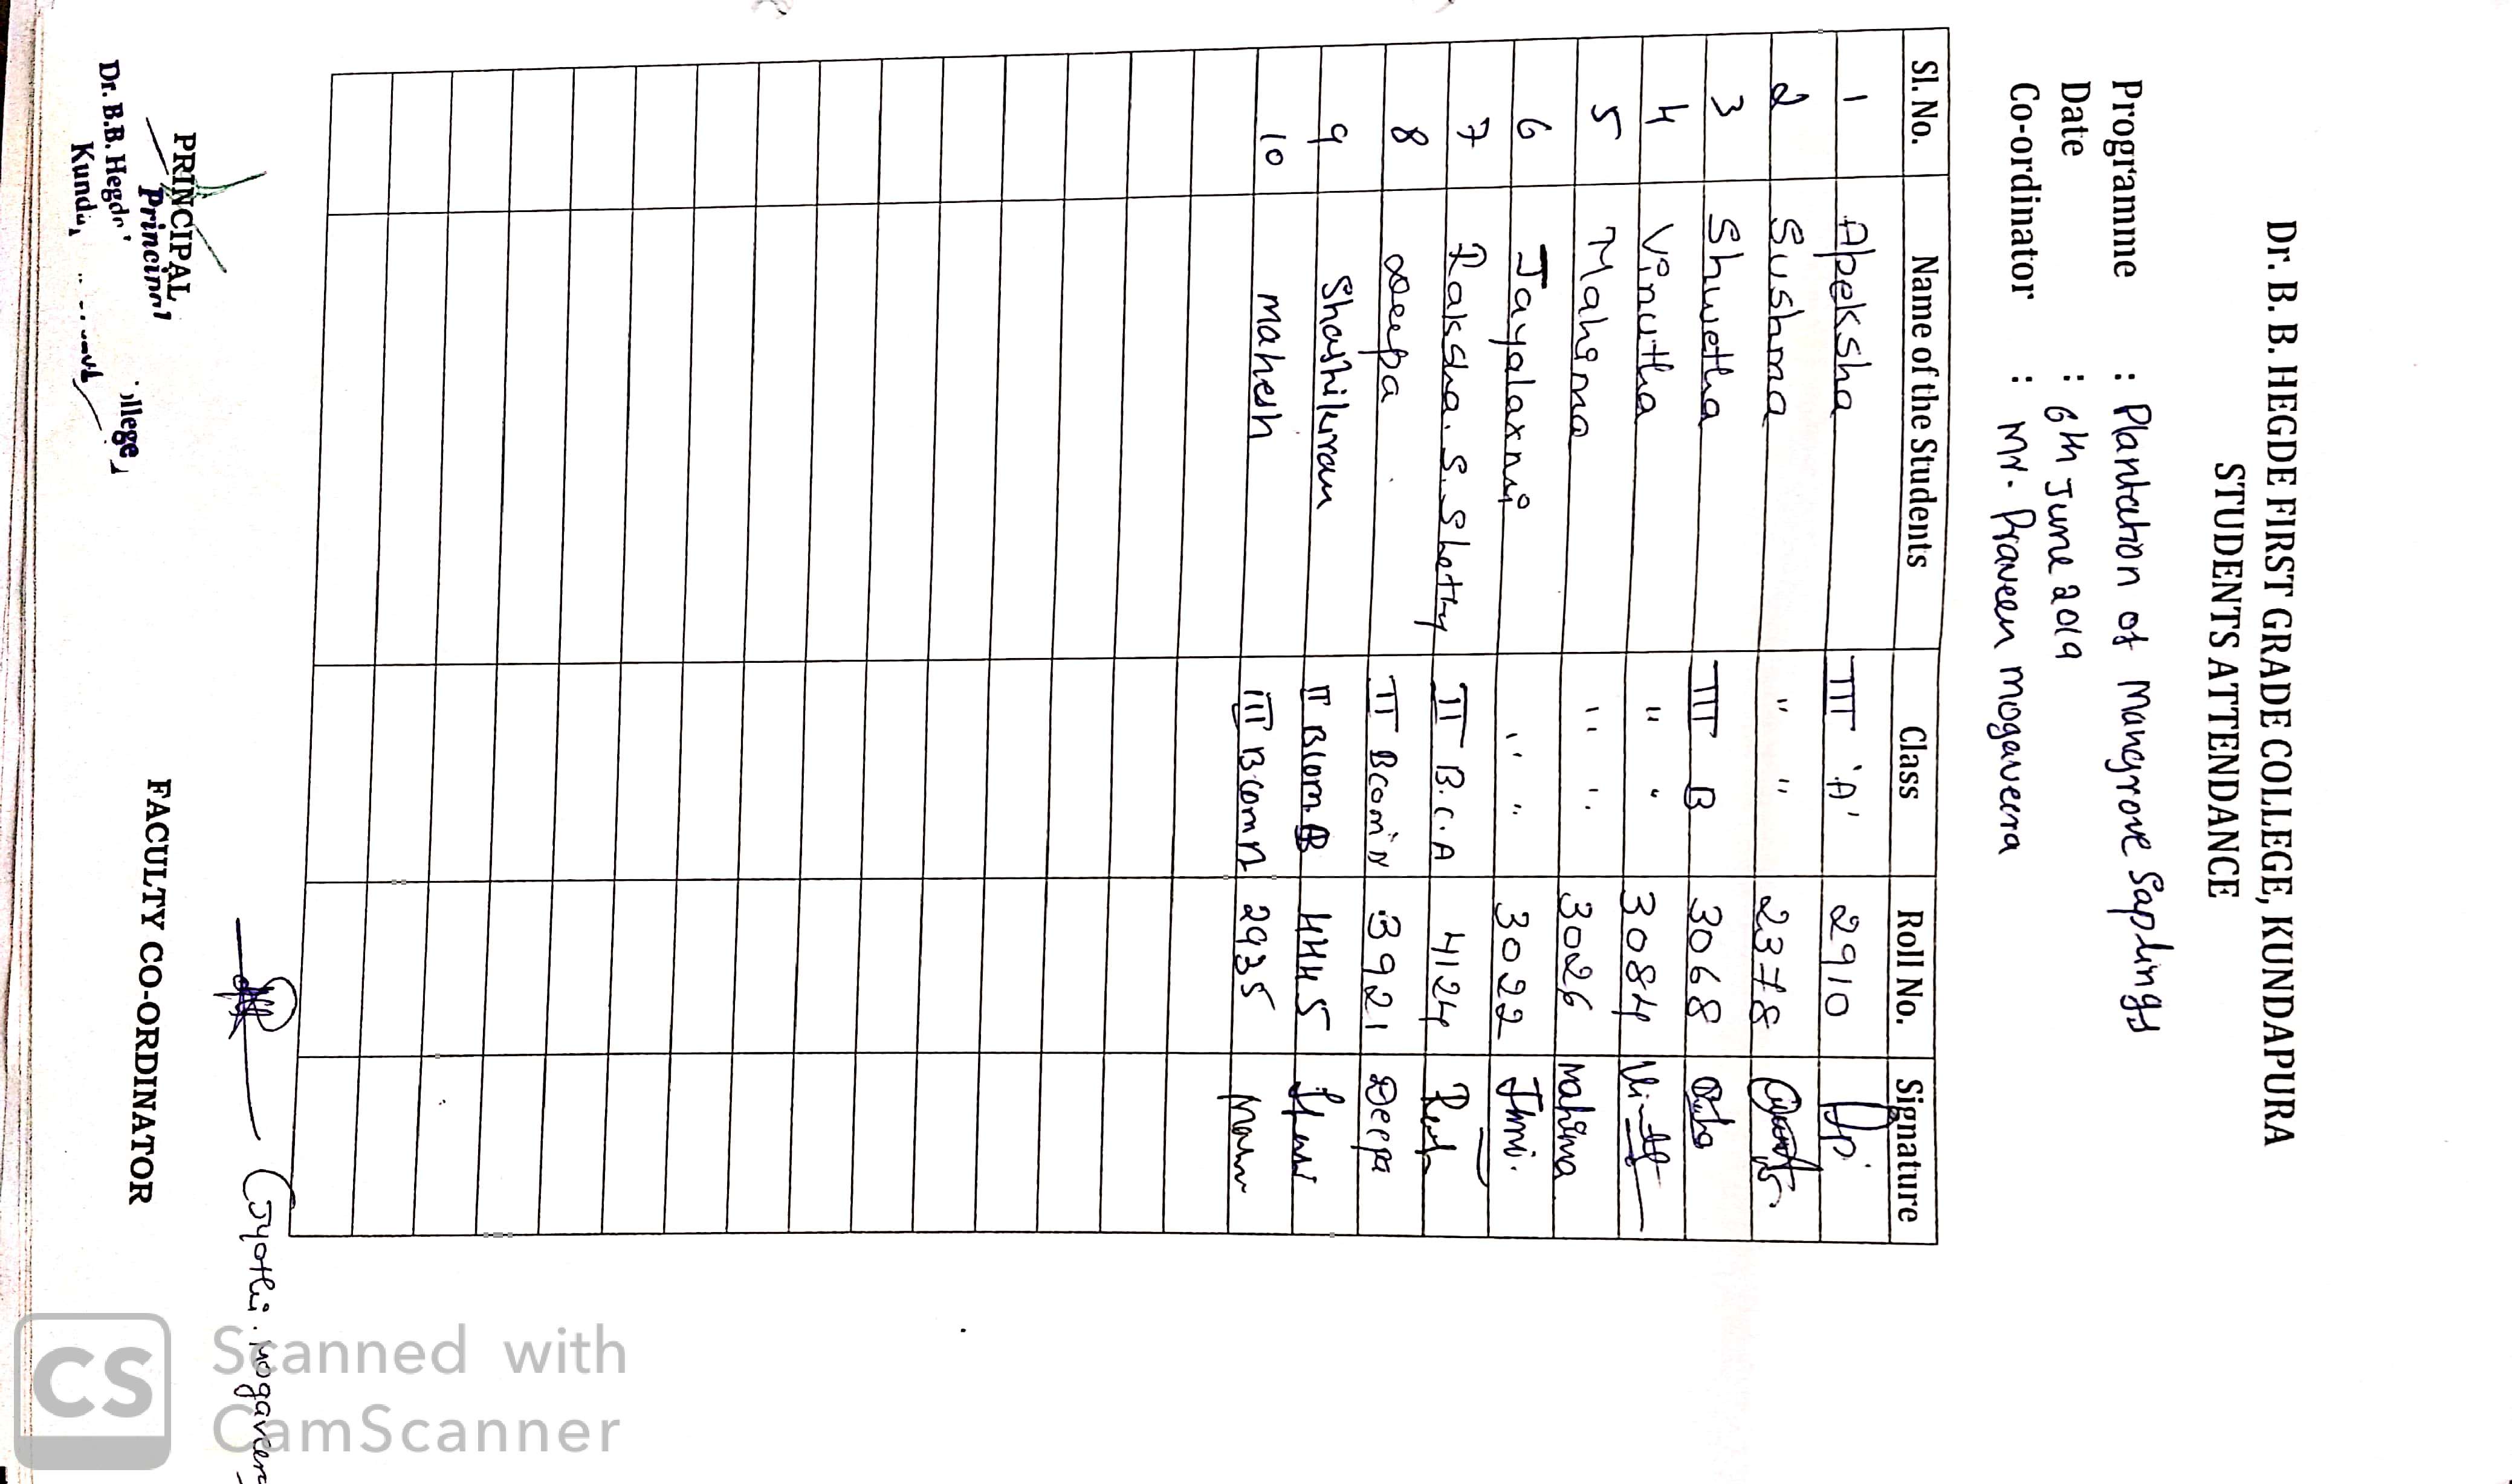 Dr. B. B. HEGDE FIRST GRADE COLLEGE, KUNDAPURA
STUDENTS ATTENDANCE
Programme : Plantation of Mangrove Saplings
Date : 6th June 2019
Co-ordinator : Mr. Praveen mogaveera
Sl. No. Name of the Students Class Roll No. Signature
1 Apeksha III 'A' 2910
2 Sushma " " 2378
3 Shwetha III B 3068
4 Vinutha " " 3084
5 Mahima " " 3026 Mahima
6 Jayalaxmi " " 3022
7 Raksha. S. Shetty II B.C.A 4124
8 Deepa II Bcom 3921 Deepa
9 Shashikiran II Bcom B 4445
10 Mahesh III Bcom 2935
Jyothi. Mogaveera
PRINCIPAL FACULTY CO-ORDINATOR
Principal
Dr. B.B. Hegde
Scanned with
CS CamScanner